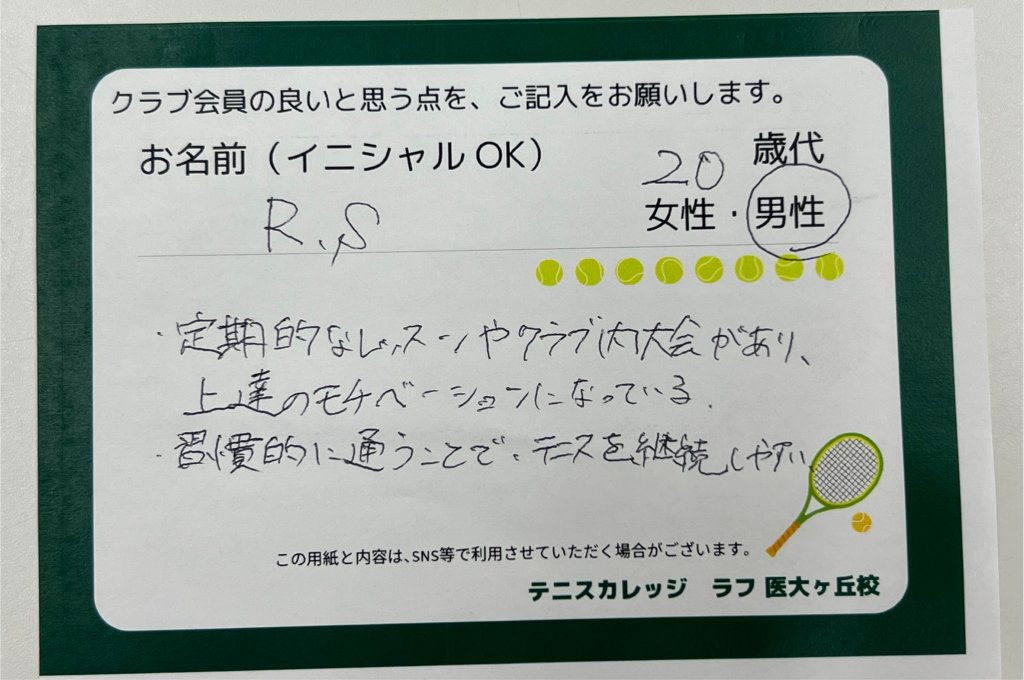 クラブ会員の良いと思う点を、ご記入をお願いします。
お名前（イニシャルOK）
20 歳代
R.S
女性・男性
・定期的なレッスンやクラブ内大会があり、
上達のモチベーションになっている.
・習慣的に通うことで、テニスを継続しやすい
この用紙と内容は、SNS等で利用させていただく場合がございます。
テニスカレッジ ラフ 医大ヶ丘校